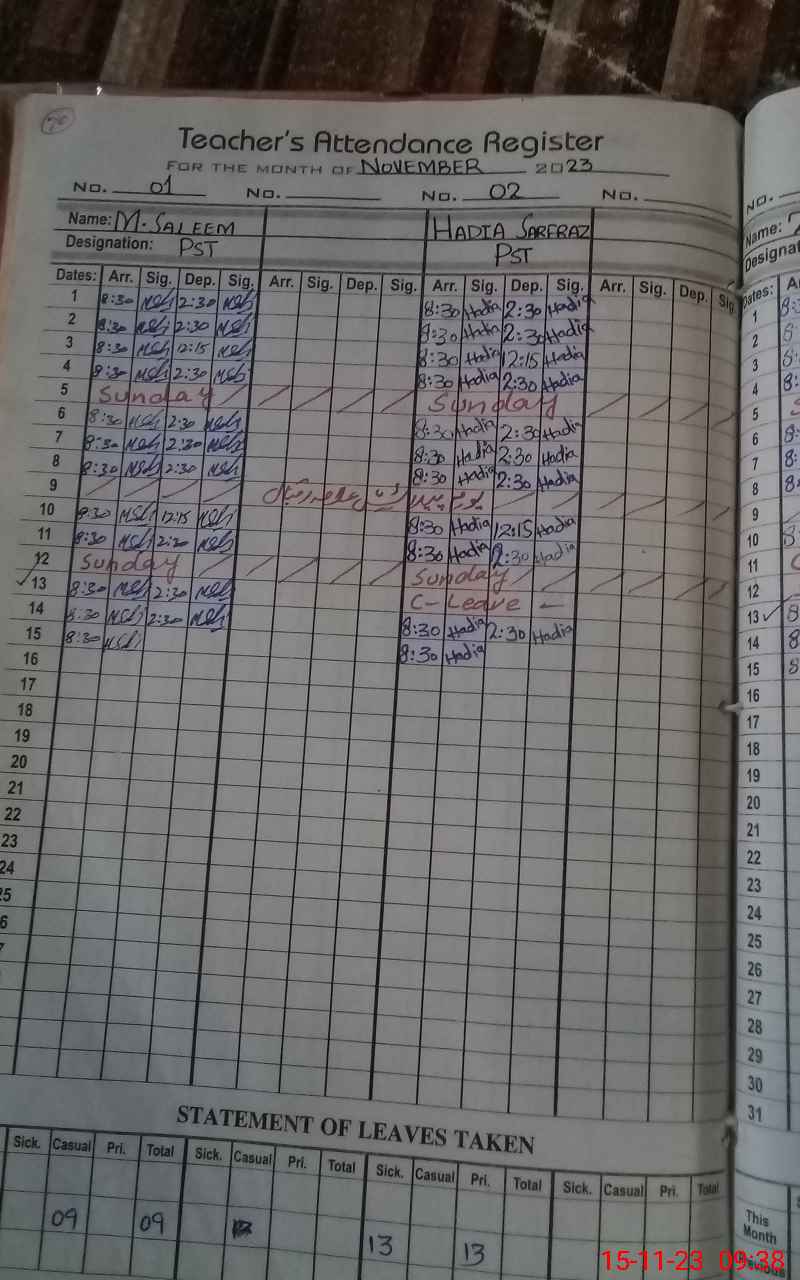 70
Teacher's Attendance Register
FOR THE MONTH OF NOVEMBER 2023
No. 01 No. No. 02 No. No.
Name: M. SALEEM HADIA SARFRAZ Name:
Designation: PST PST
Dates: Arr. Sig. Dep. Sig. Arr. Sig. Dep. Sig. Arr. Sig. Dep. Sig. Arr. Sig. Dep. Sig. Dates:
1 8:30 2:30 8:30 Hadia 2:30 Hadia 1
2 8:30 2:30 8:30 Hadia 2:30 Hadia 2
3 8:30 12:15 8:30 Hadia 12:15 Hadia 3
4 8:30 2:30 8:30 Hadia 2:30 Hadia 4
5 Sunday Sunday 5
6 8:30 2:30 8:30 Hadia 2:30 Hadia 6
7 8:30 2:30 8:30 Hadia 2:30 Hadia 7
8 8:30 2:30 8:30 Hadia 2:30 Hadia 8
9 9
10 8:30 12:15 8:30 Hadia 12:15 Hadia 10
11 8:30 2:30 8:30 Hadia 2:30 Hadia 11
12 Sunday Sunday 12
13 8:30 2:30 C-Leave - 13
14 8:30 2:30 8:30 Hadia 2:30 Hadia 14
15 8:30 8:30 Hadia 15
16 16
17 17
18 18
19 19
20 20
21 21
22 22
23 23
24 24
25 25
6 26
27
28
29
30
31
STATEMENT OF LEAVES TAKEN
Sick. Casual Pri. Total Sick. Casual Pri. Total Sick. Casual Pri. Total Sick. Casual Pri. Total
This Month
09 09 13 13
15-11-23 09:38